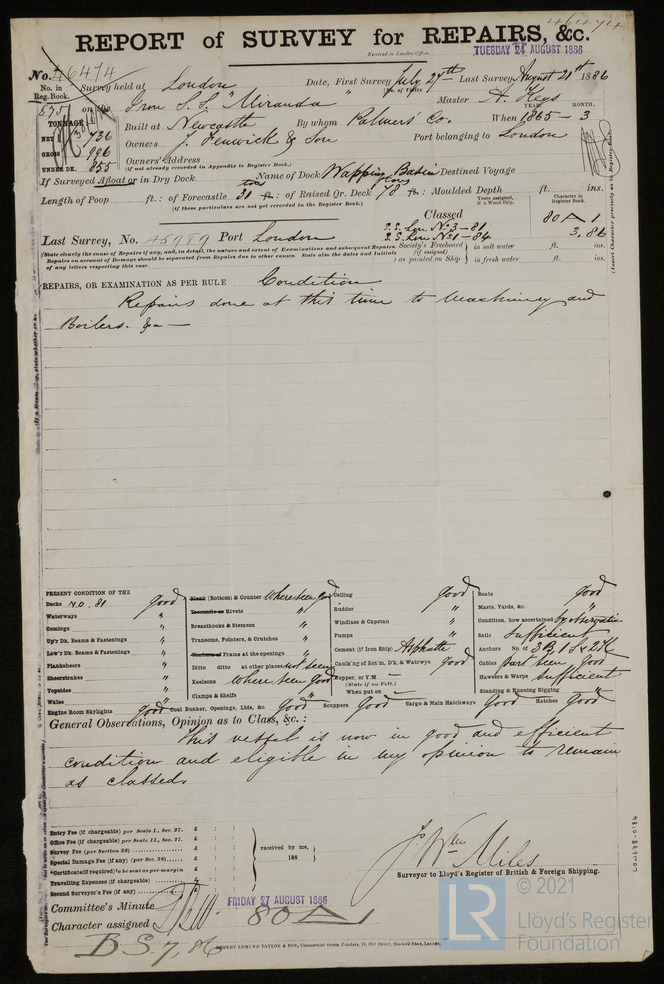 46474
REPORT of SURVEY for REPAIRS, &c.
Received in London Office
TUESDAY 24 AUGUST 1886
No. 46474 Survey held at London Date, First Survey July 27th Last Survey August 21st 1886
No. in Reg. Book.
(No. of Visits
575 on the Iron S.S. "Miranda" Master A. Keys
TONNAGE
NET 736
GROSS 996
UNDER DK. 855
Built at Newcastle By whom Palmers Co. When 1865 - 3
YEAR. MONTH.
Owners J. Fenwick & Son Port belonging to London
Owners' Address
(if not already recorded in Appendix to Register Book.)
If Surveyed Afloat or in Dry Dock Name of Dock Wapping Basin Destined Voyage
Length of Poop ft. : of Forecastle 31 ft. : of Raised Qr. Deck 78 ft. : Moulded Depth ft. ins.
(if these particulars are not yet recorded in the Register Book.)
Years assigned, if a Wood Ship.
Character in Register Book.
Classed
S.S. Lon. No. 3 - 81
S.S. Lon. No. 1 - 84
80 △ 1
3,86
Last Survey, No. 45989 Port London
Society's Freeboard (if assigned) as painted on Ship in salt water ft. ins.
in fresh water ft. ins.
(State clearly the cause of Repairs if any, and, in detail, the nature and extent of Examinations and subsequent Repairs.
Repairs on account of Damage should be separated from Repairs due to other causes. State also the dates and Initials
of any letters respecting this case.
(Insert Character precisely as in Register Book.
REPAIRS, OR EXAMINATION AS PER RULE Condition
Repairs done at this time to Machinery and
Boilers. &c —
PRESENT CONDITION OF THE
Decks N.D. 81 good
Waterways "
Comings "
Up'r Dk. Beams & Fastenings "
Low'r Dk. Beams & Fastenings "
Planksheers "
Sheerstrakes "
Topsides "
Wales "
Engine Room Skylights good
Plank (Bottom) & Counter where seen good
Treenails or Rivets "
Breasthooks & Stemson "
Transoms, Pointers, & Crutches "
Timbers of Frame at the openings "
Ditto ditto at other places not seen
Keelsons where seen good
Clamps & Shelfs "
Coal Bunker, Openings, Lids, &c. good
Ceiling good
Rudder "
Windlass & Capstan "
Pumps "
Cement (if Iron Ship) Asphalte
Caulk'ng of Bot'm, D'k, & Watrwys good
Copper, or Y.M. —
(State if on Felt.)
When put on —
Scuppers good
Cargo & Main Hatchways good
Boats good
Masts, Yards, &c. "
Condition, how ascertained by observation
Sails Sufficient
Anchors No. of 3B, 1S & 2K
Cables part seen good
Hawsers & Warps sufficient
Standing & Running Rigging "
Hatches good
General Observations, Opinion as to Class, &c. :
This vessel is now in good and efficient
condition and eligible in my opinion to remain
as classed.
Entry Fee (if chargeable) per Scale I., Sec. 27. £ : :
Office Fee (if chargeable) per Scale II., Sec. 27. £ : :
Survey Fee (per Section 28) £ : :
Special Damage Fee (if any) (per Sec. 28) £ : :
*Certificate (if required) to be sent as per margin
Travelling Expenses (if chargeable) £ : :
Second Surveyor's Fee (if any) £ : :
received by me,
188
Jo Wm Miles
Surveyor to Lloyd's Register of British & Foreign Shipping.
Committee's Minute FRIDAY 27 AUGUST 1886
Character assigned 80 △ 1
B S. 7, 86
ROBERT EDMUND TAYLOR & SON, Commercial Steam Printers, 19, Old Street, Goswell Road, London.
LR
© 2021
Lloyd's Register
Foundation